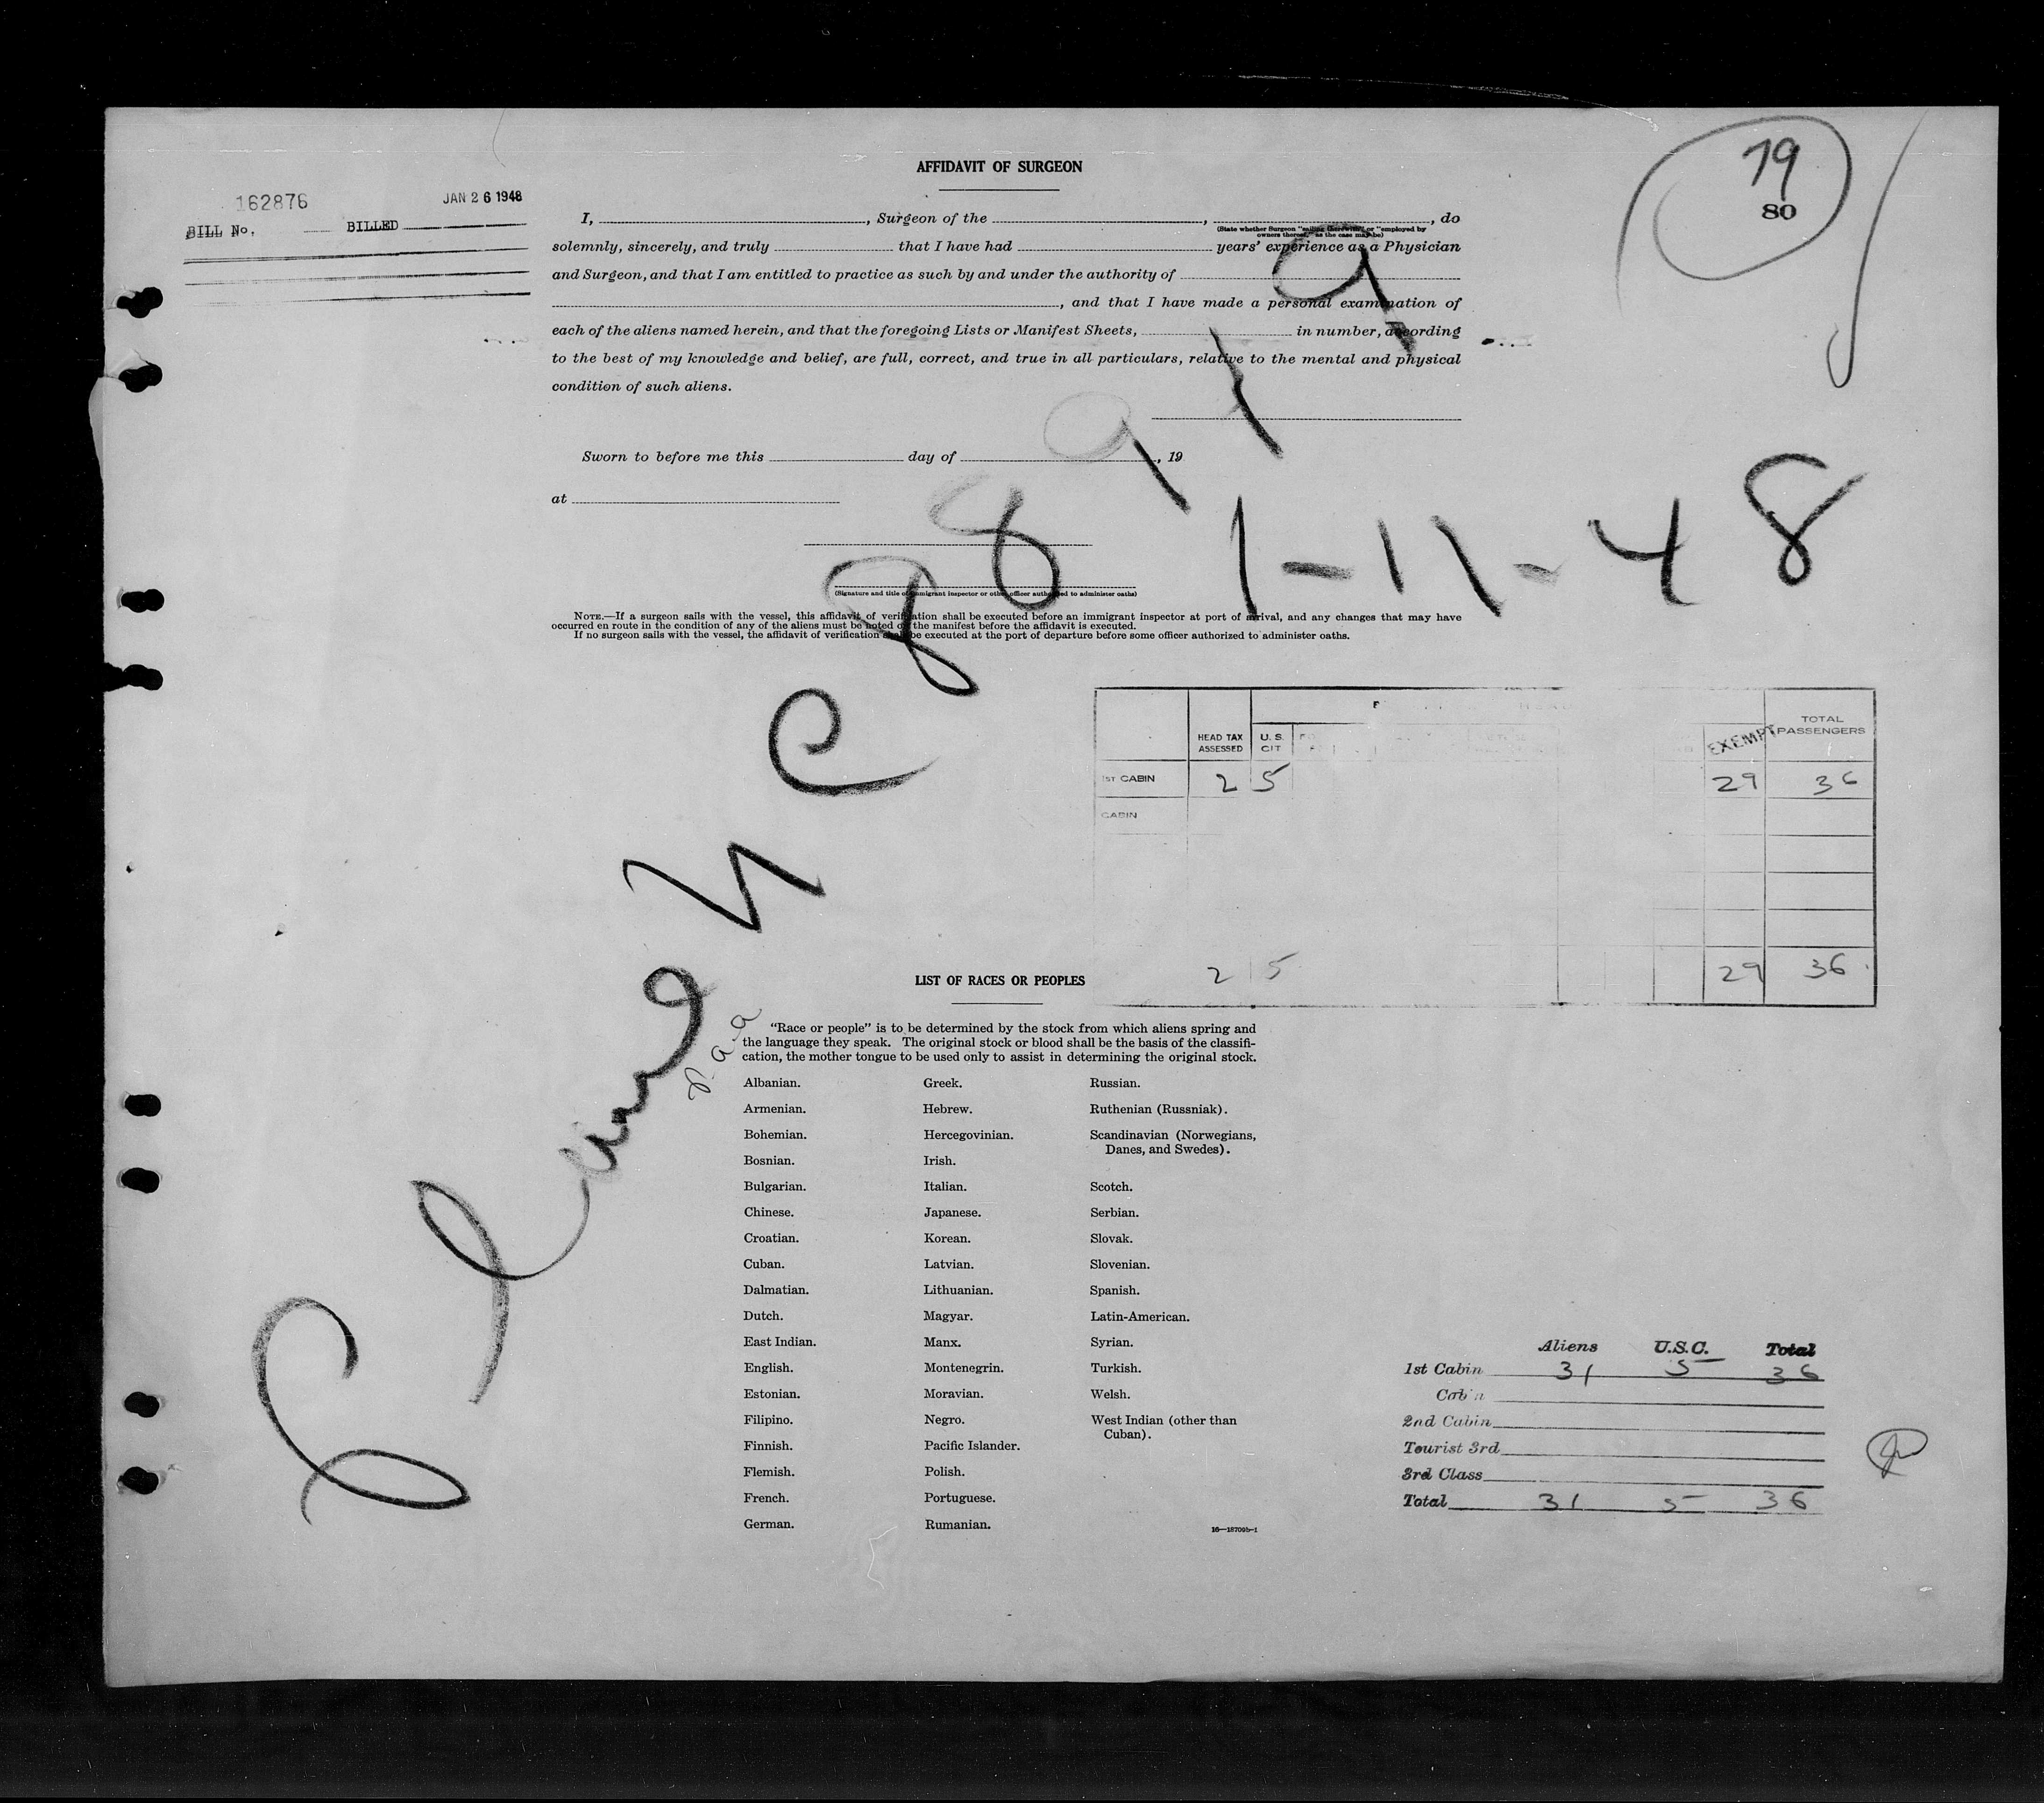 AFFIDAVIT OF SURGEON
79
80
162876 JAN 26 1948
BILL No. BILLED
I, , Surgeon of the , , do
(State whether Surgeon "sailing therewith," or "employed by
owners thereof," as the case may be)
solemnly, sincerely, and truly that I have had years' experience as a Physician
and Surgeon, and that I am entitled to practice as such by and under the authority of
, and that I have made a personal examination of
each of the aliens named herein, and that the foregoing Lists or Manifest Sheets, in number, according
to the best of my knowledge and belief, are full, correct, and true in all particulars, relative to the mental and physical
condition of such aliens.
Sworn to before me this day of , 19
at
(Signature and title of immigrant inspector or other officer authorized to administer oaths)
NOTE.—If a surgeon sails with the vessel, this affidavit of verification shall be executed before an immigrant inspector at port of arrival, and any changes that may have
occurred en route in the condition of any of the aliens must be noted on the manifest before the affidavit is executed.
If no surgeon sails with the vessel, the affidavit of verification shall be executed at the port of departure before some officer authorized to administer oaths.
NC 88919
1-11-48
HEAD TAX ASSESSED U. S. CIT EXEMPT TOTAL PASSENGERS
1ST CABIN 2 5 29 36
CABIN
2 5 29 36
LIST OF RACES OR PEOPLES
"Race or people" is to be determined by the stock from which aliens spring and
the language they speak. The original stock or blood shall be the basis of the classifi-
cation, the mother tongue to be used only to assist in determining the original stock.
Albanian. Greek. Russian.
Armenian. Hebrew. Ruthenian (Russniak).
Bohemian. Hercegovinian. Scandinavian (Norwegians,
Danes, and Swedes).
Bosnian. Irish.
Bulgarian. Italian. Scotch.
Chinese. Japanese. Serbian.
Croatian. Korean. Slovak.
Cuban. Latvian. Slovenian.
Dalmatian. Lithuanian. Spanish.
Dutch. Magyar. Latin-American.
East Indian. Manx. Syrian.
English. Montenegrin. Turkish.
Estonian. Moravian. Welsh.
Filipino. Negro. West Indian (other than
Cuban).
Finnish. Pacific Islander.
Flemish. Polish.
French. Portuguese.
German. Rumanian.
16—18709b-1
Aliens U.S.C. Total
1st Cabin 31 5 36
Cabin
2nd Cabin
Tourist 3rd
3rd Class
Total 31 5 36